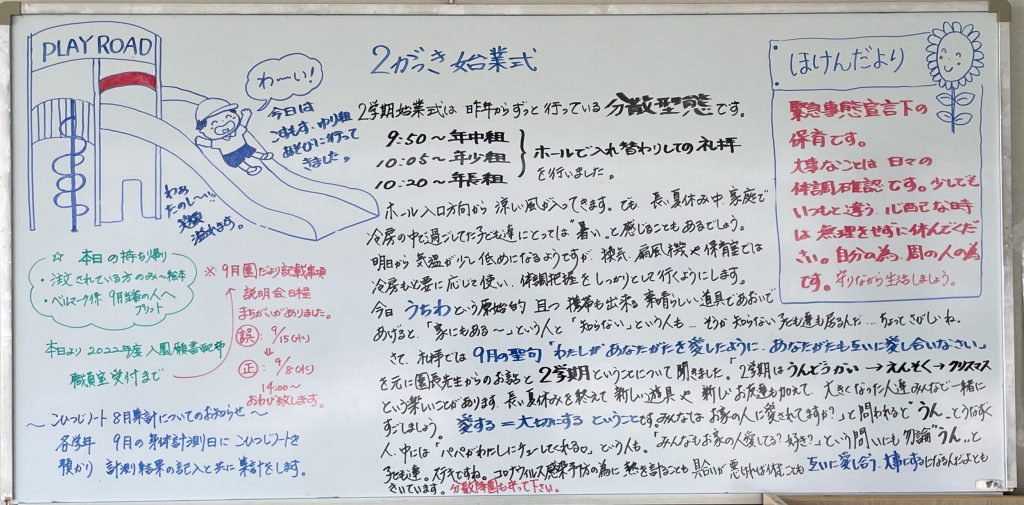 PLAY ROAD
わーい!
今日は
こすもす、ゆり組
あそびに行って
きました。
わぁ
たのしー!!
笑顔
溢れます。
☆ 本日の持ち帰り
・注文されている方のみ〜絵本
・ベルマーク係 9月当番の人へ
プリント
本日より 2022年度 入園願書配布
職員室受付まで
※ 9月園だより記載事項
説明会日程
まちがいがありました。
誤: 9/15(水)
↓
正: 9/8(水)
14:00〜
おわび致します。
〜 こひつじノート 8月集計についてのお知らせ 〜
各学年 9月の身体計測日に こひつじノートを
預かり 計測結果の記入と共に 集計をします。
2がっき 始業式
2学期始業式は 昨年からずっと行っている 分散型態です。
9:50〜年中組
10:05〜年少組
10:20〜年長組
ホールで入れ替わりしての礼拝
を行いました。
ホール入口方向から 涼しい風が入ってきます。でも、長い夏休み中、家庭で
冷房の中で過ごしてた子ども達にとっては“暑い„と感じることもあるでしょう。
明日から 気温が少し低めになるようですが、換気、扇風機や保育室では
冷房も必要に応じて使い、体調把握を しっかりとして行くようにします。
今日 うちわという原始的 且つ 携帯も出来る 素晴らしい道具であおいで
あげると、「家にもある〜」という人と「知らない」という人も…そうか知らない子ども達も居るんだ…ちょっとさびしいね。
さて、礼拝では 9月の聖句 “わたしがあなたがたを愛したように、あなたがたも互いに愛し合いなさい„
を元に園長先生からのお話と 2学期ということについて 聞きました。「2学期は うんどうかい → えんそく → クリスマス
という楽しいことがあります。長い夏休みを終えて 新しい道具や 新しいお友達も加えて、大きくなった人達みんなで一緒に
すごしましょう。 愛する = 大切にする ということです。みんなは お家の人に愛されてますか?」と問われると“うん„とうなずく
人、中には「パパがわたしにチューしてくれる。」という人も。「みんなもお家の人愛してる?好き?」という問いにも 勿論“うん„と
子ども達。ステキですね。コロナウィルス感染予防の為に 熱を計ることも 具合が悪ければ休むことも 互いに愛し合う、大事にするになるんだよとも
きいています。分散降園も守って下さい。
ほけんだより
緊急事態宣言下の
保育です。
大事なことは 日々の
体調確認です。少しでも
いつもと違う、心配な時
は 無理をせずに休んでくだ
さい。自分の為、周の人の為
です。守りながら生活しましょう。